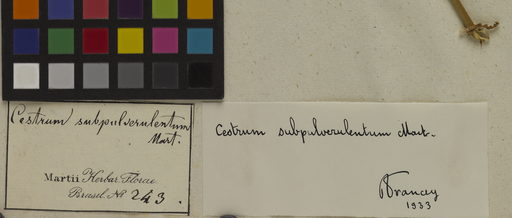 Cestrum subpulverulentum
Mart.
Martii Herbar. Florae
Brasil. No 243.
Cestrum subpulverulentum Mart.
Francey
1933